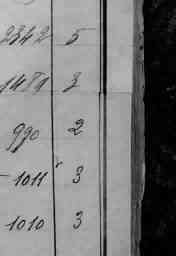 2342 5
1481 3
990 2
- 1011 3
1010 3